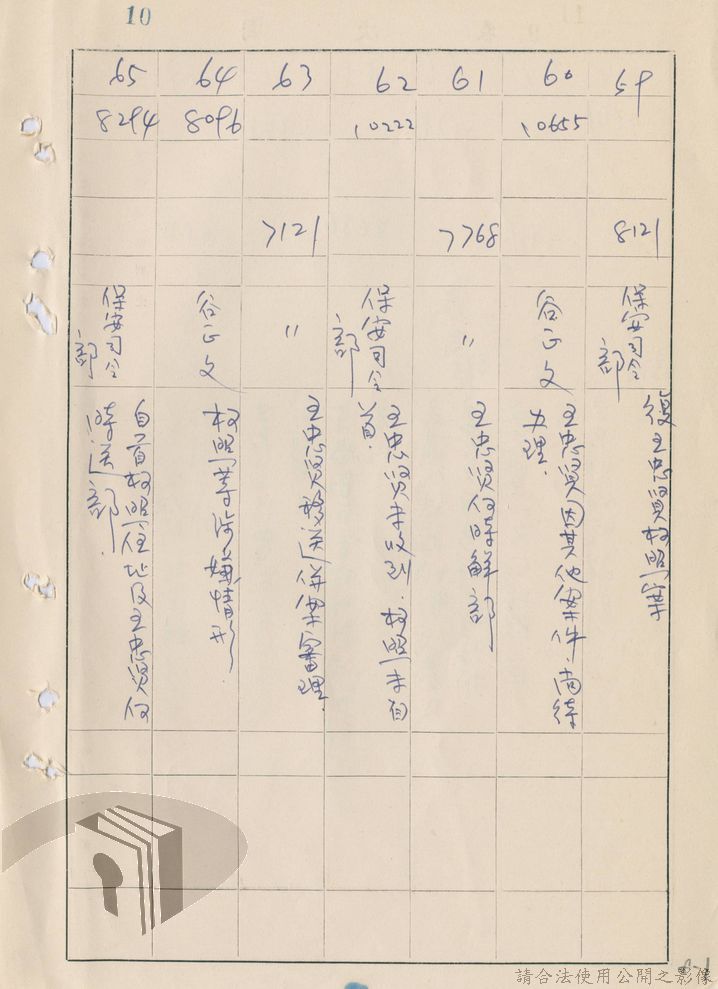 10
59
8121
保安司令
部
復王忠賢柯照案
60
10655
谷正文
王忠賢因其他案件,尚待
办理.
61
7768
〃
王忠賢何時解部
62
10222
保安司令
部
王忠賢未收到.柯照未自
首.
63
7121
〃
王忠賢移送併案審理.
64
8096
谷正文
柯照等涉嫌情形.
65
8294
保安司令
部
自首柯照住址及王忠賢何
時送部.
8-1
請合法使用公開之影像